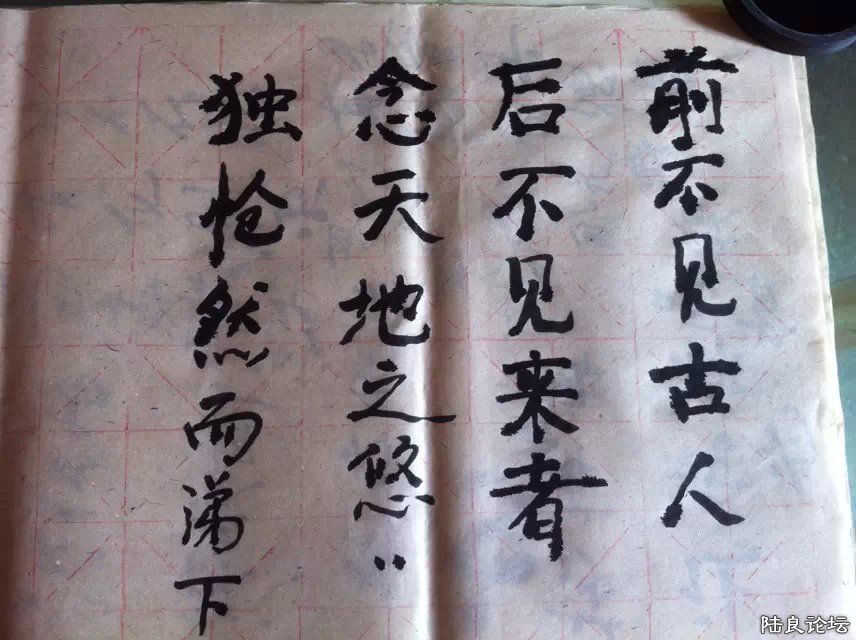 前不见古人
后不见来者
念天地之悠〃
独怆然而涕下
陆良论坛